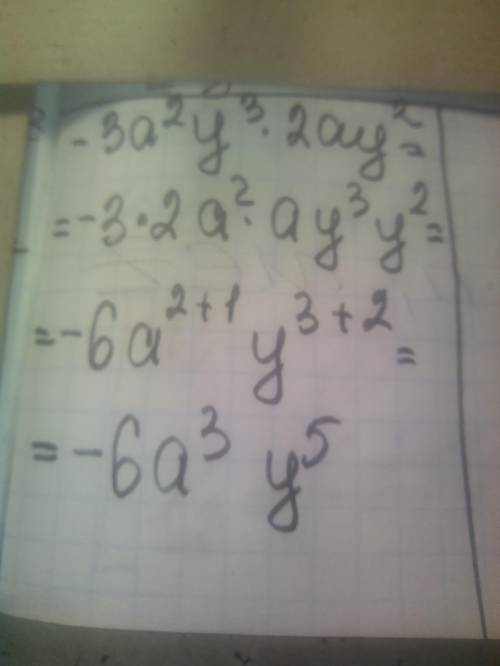 - 3a²y³ · 2ay² =
= -3 · 2 a² · a y³ y² =
= -6a²⁺¹ y³⁺² =
= -6a³ y⁵